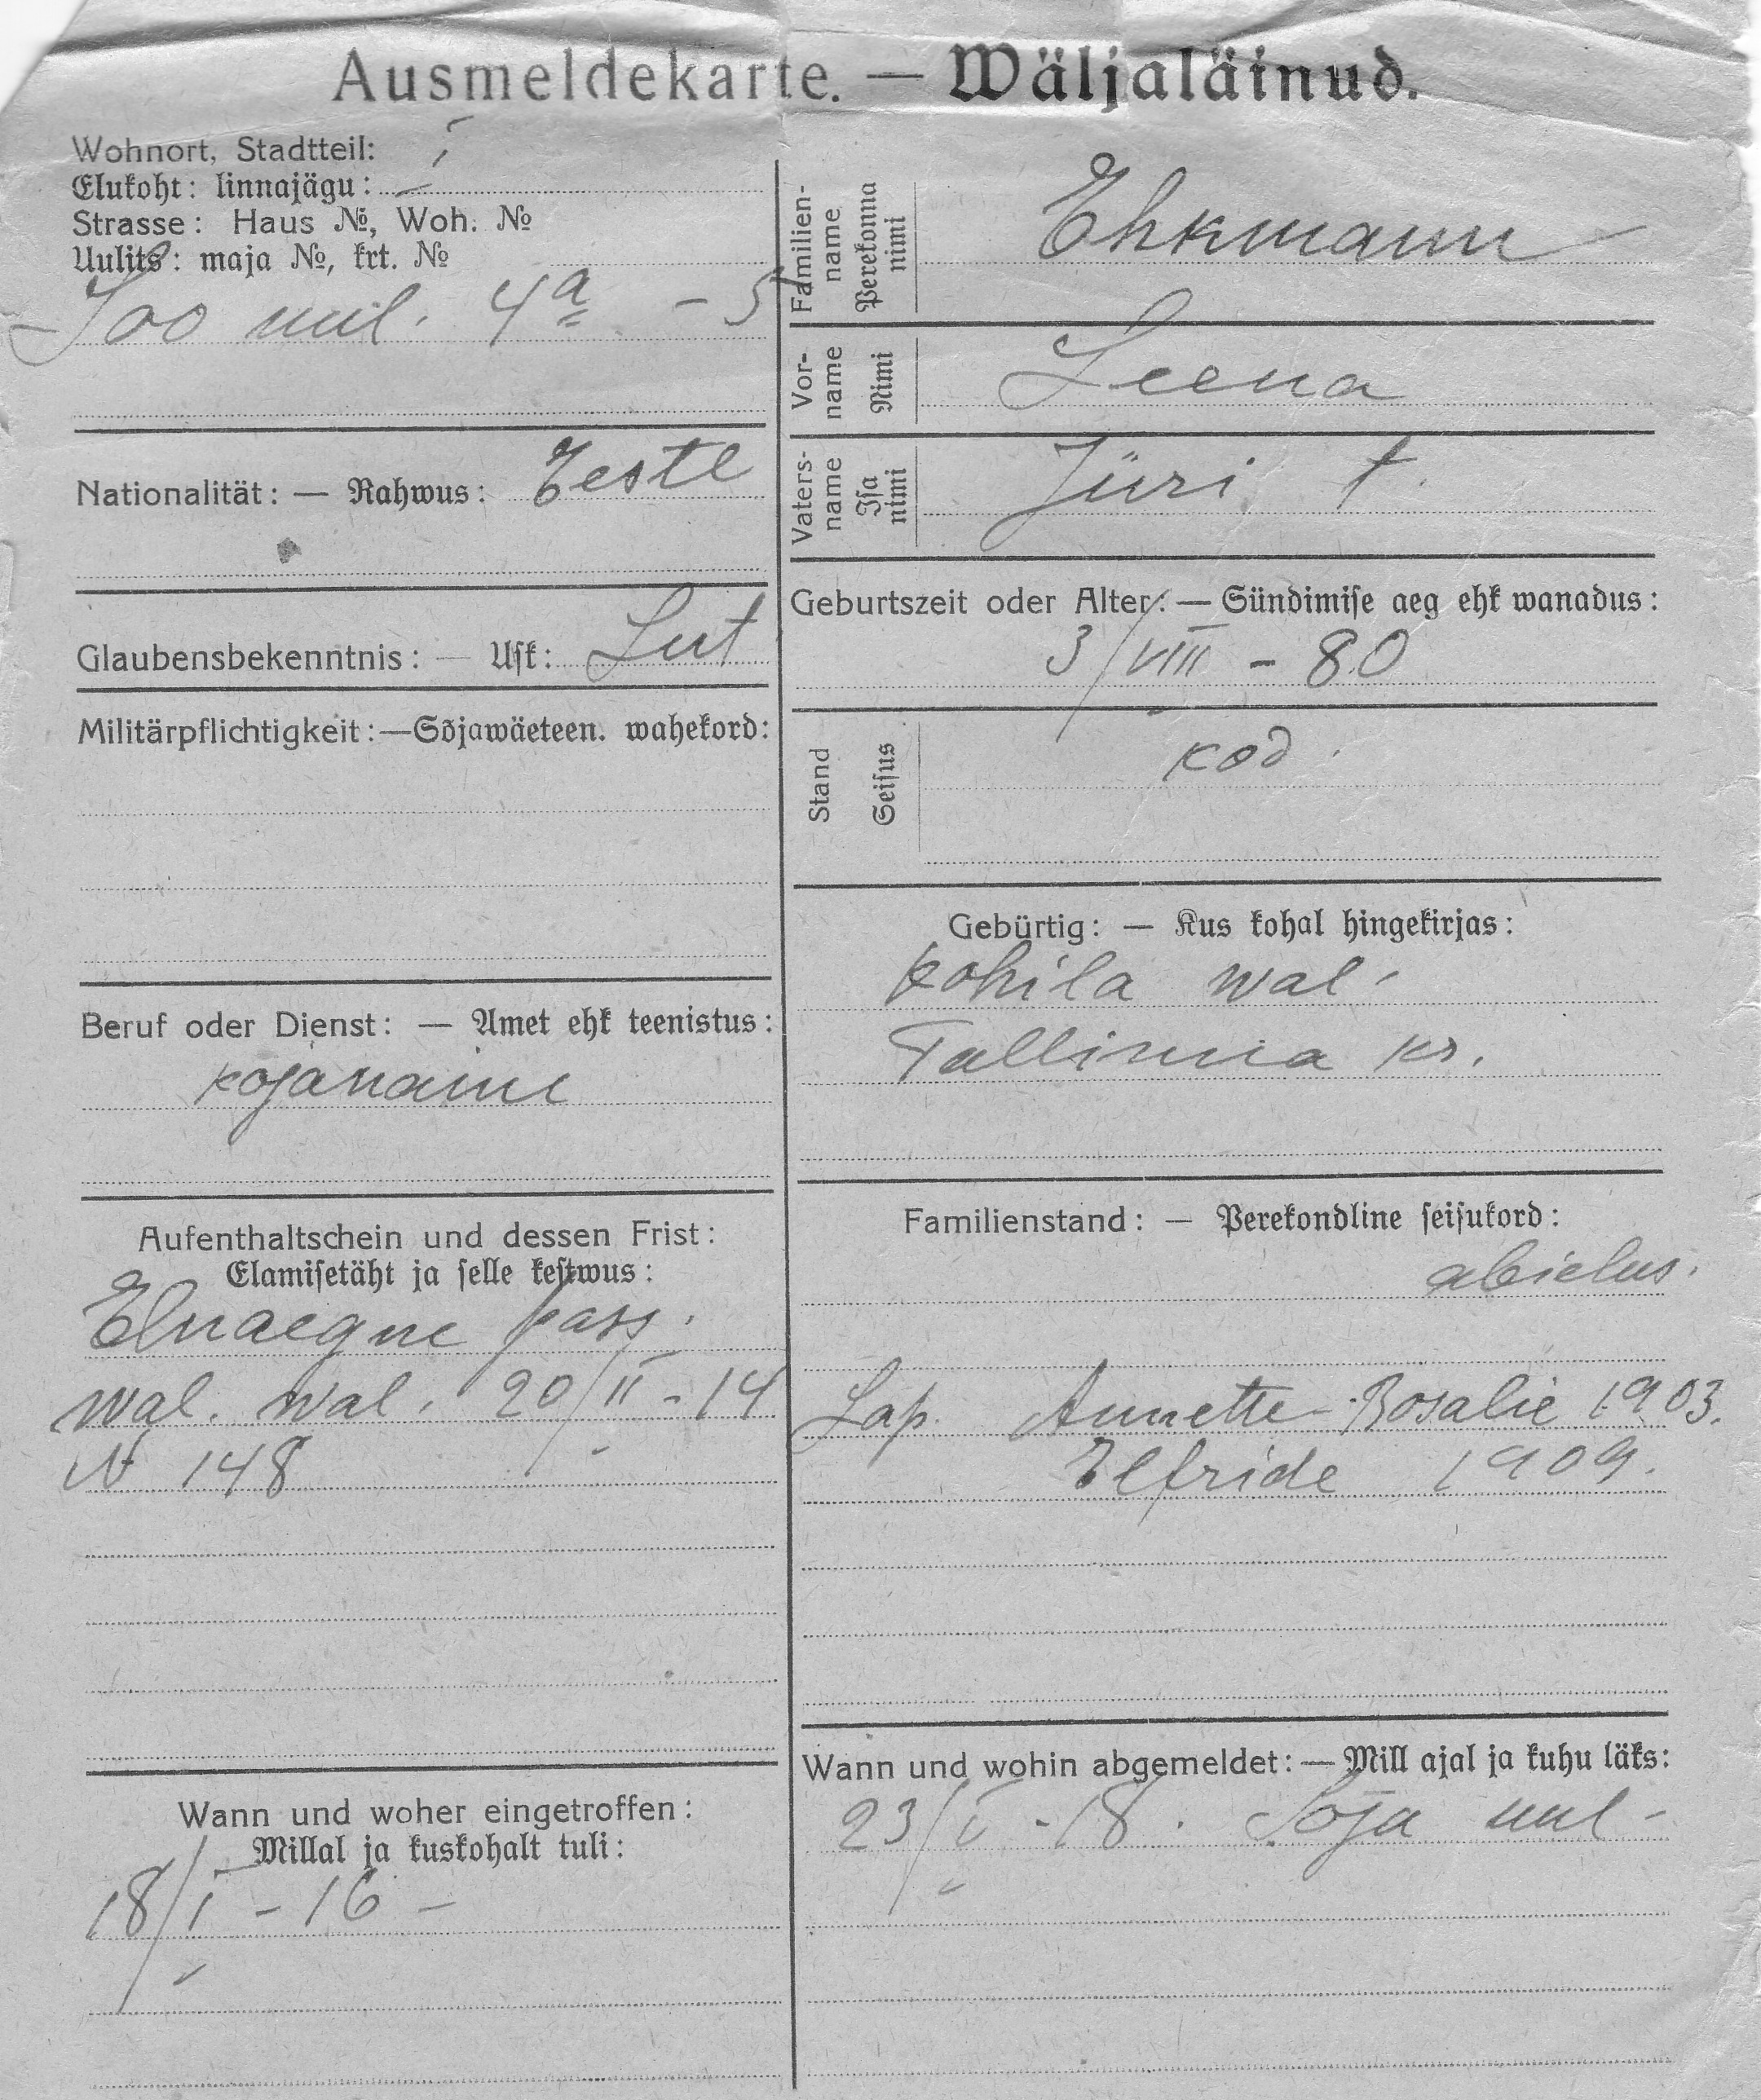 Ausmeldekarte. — Wäljaläinud.
Wohnort, Stadtteil: I
Elukoht: linnajägu:
Strasse: Haus №, Woh. №
Uulits: maja №, krt. №
Soo uul. 4a - 5
Nationalität: — Rahwus: Eestl
Glaubensbekenntnis: — Usk: Lut
Militärpflichtigkeit:—Sõjawäeteen. wahekord:
Beruf oder Dienst: — Amet ehk teenistus:
kojanaine
Aufenthaltschein und dessen Frist:
Elamisetäht ja selle kestwus:
Eluaegne pass.
wal. wal. 20/II - 14
N 148
Wann und woher eingetroffen:
Millal ja kuskohalt tuli:
18/I - 16 -
Familien-
name
Perekonna
nimi
Ehkmann
Vor-
name
Nimi
Leena
Vaters-
name
Isa
nimi
Jüri t.
Geburtszeit oder Alter: — Sündimise aeg ehk wanadus:
3/VIII - 80
Stand
Seisus
kod.
Gebürtig: — Kus kohal hingekirjas:
Kohila wal.
Tallinna kr.
Familienstand: — Perekondline seisukord:
abielus.
Lap. Annette-Rosalie 1903.
Elfride 1909.
Wann und wohin abgemeldet: — Mill ajal ja kuhu läks:
23/V - 18. Sõja uul -